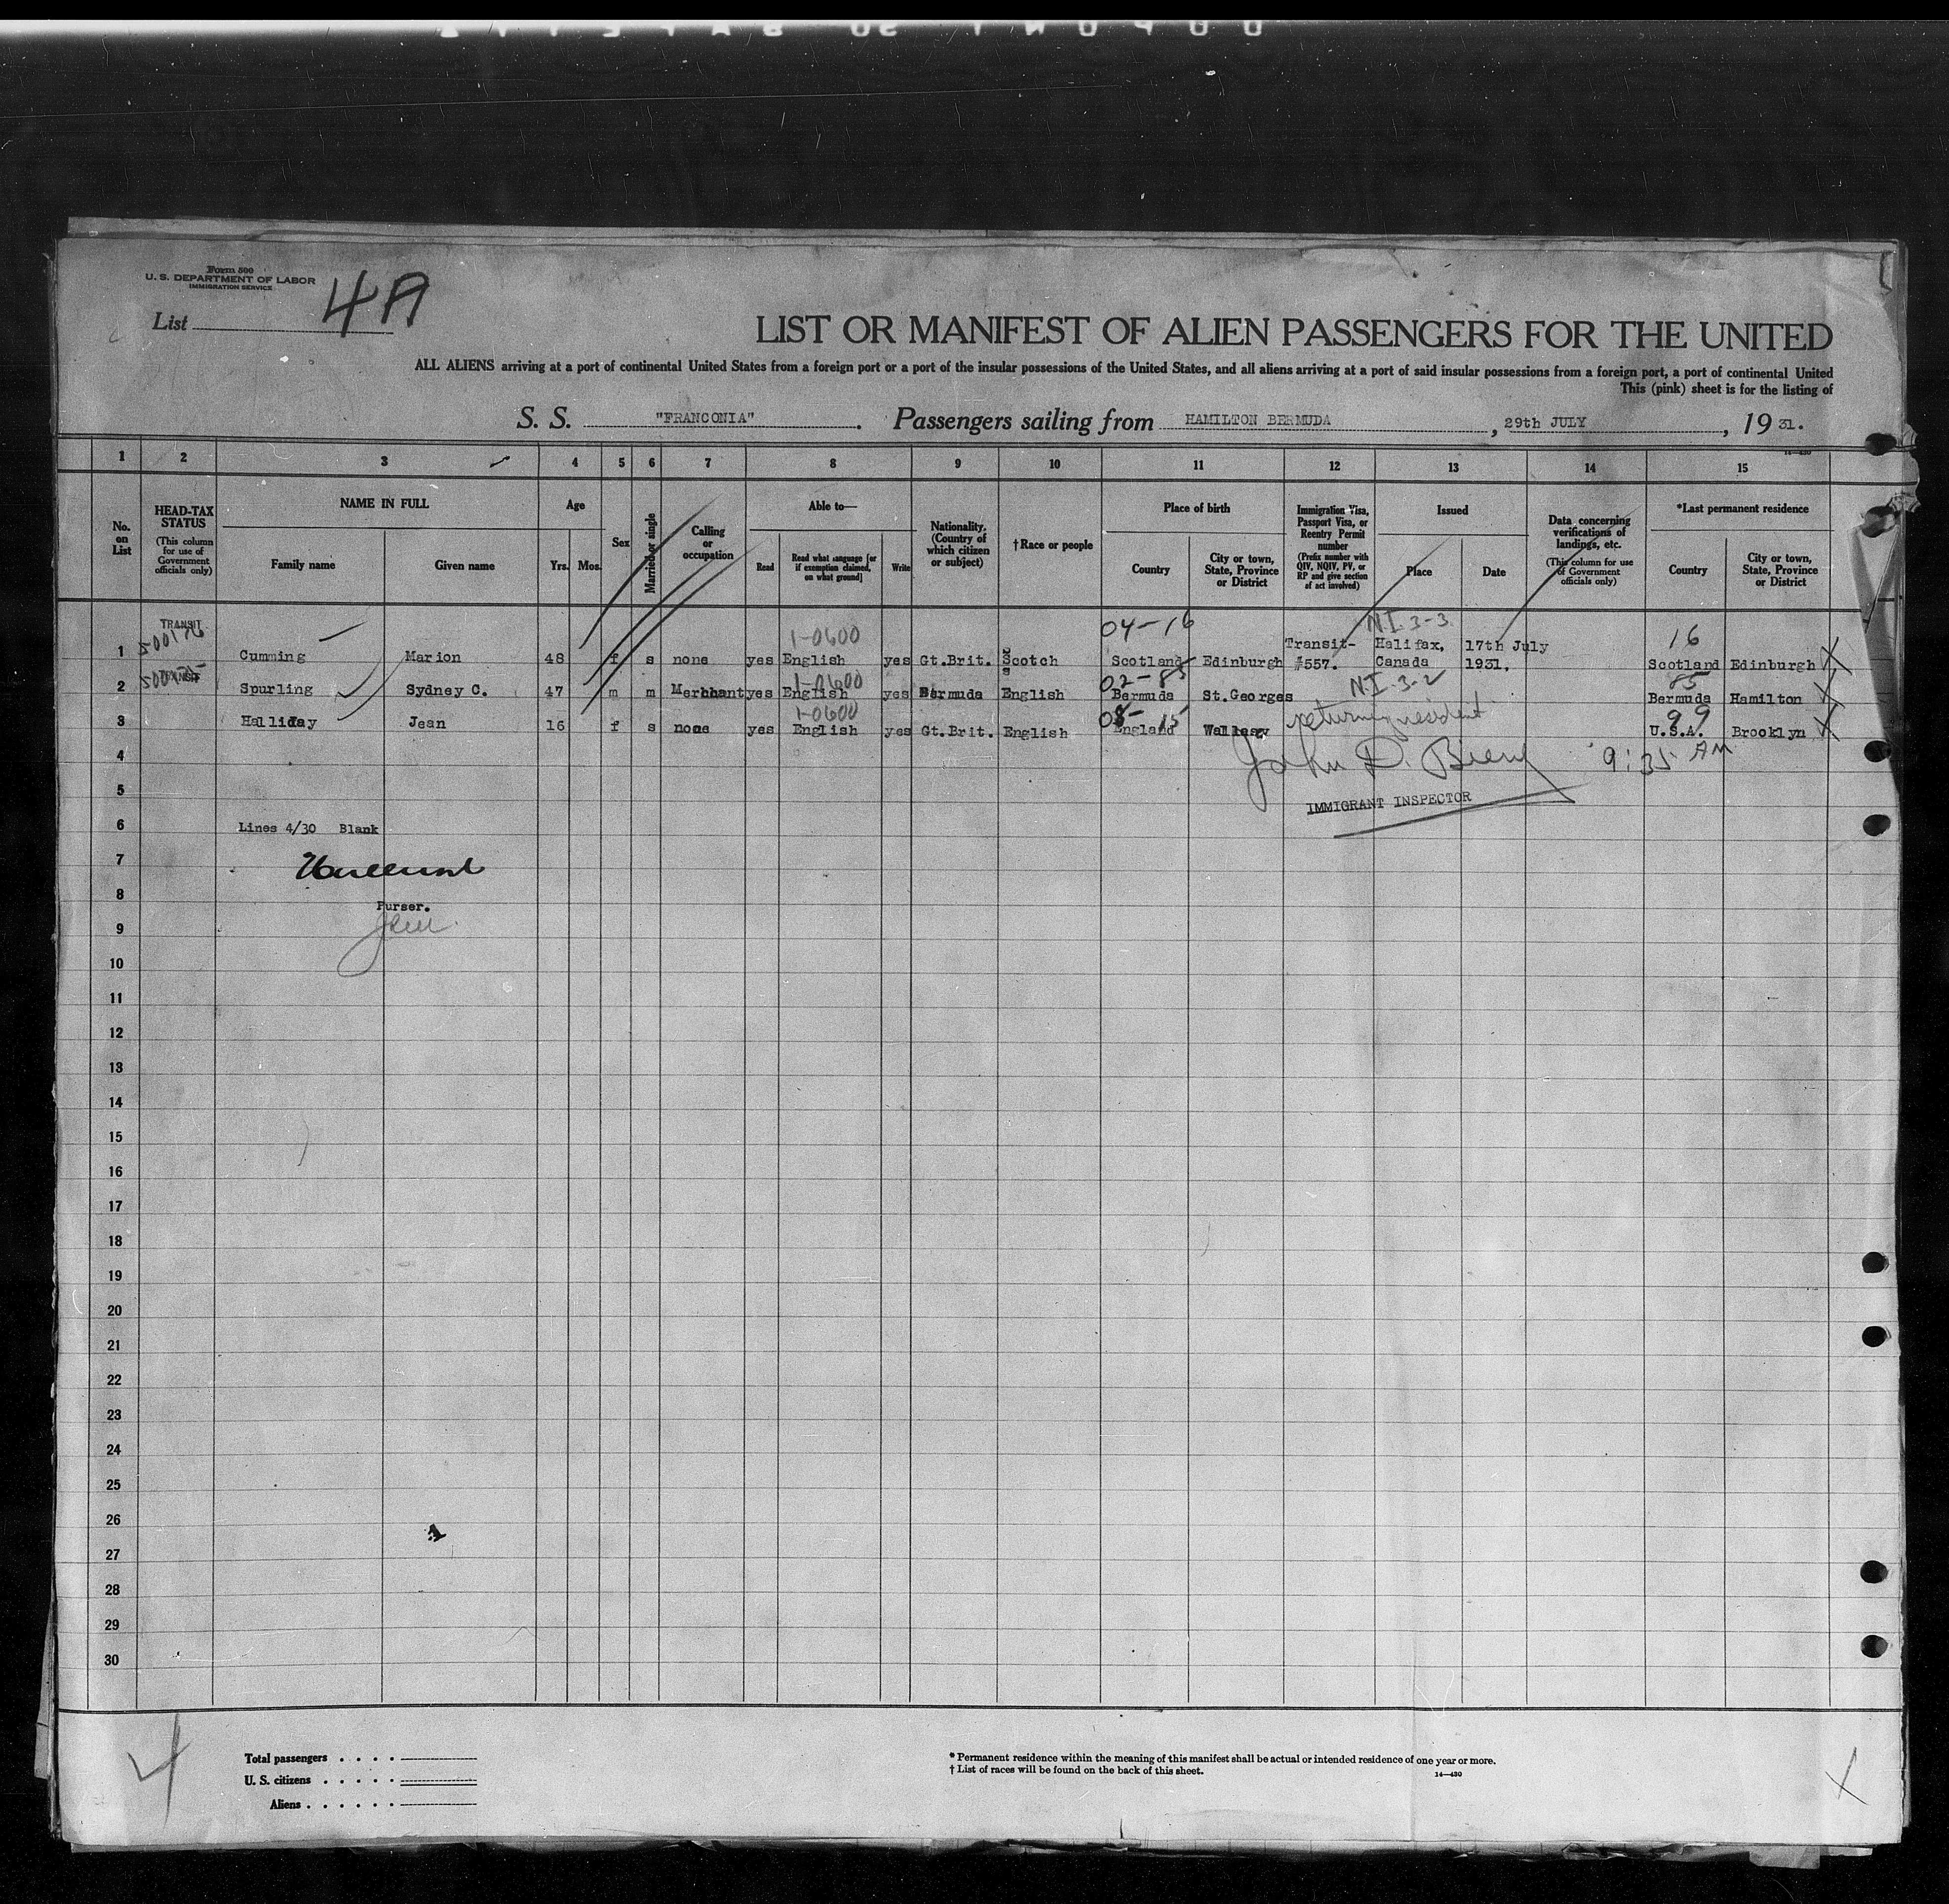 Form 500
U. S. DEPARTMENT OF LABOR
IMMIGRATION SERVICE
List 4A
LIST OR MANIFEST OF ALIEN PASSENGERS FOR THE UNITED
ALL ALIENS arriving at a port of continental United States from a foreign port or a port of the insular possessions of the United States, and all aliens arriving at a port of said insular possessions from a foreign port, a port of continental United
This (pink) sheet is for the listing of
S. S. "FRANCONIA". Passengers sailing from HAMILTON BERMUDA, 29th JULY, 1931.
14—430
1 2 3 4 5 6 7 8 9 10 11 12 13 14 15
No. on List
HEAD-TAX STATUS (This column for use of Government officials only)
NAME IN FULL
Family name Given name
Age
Yrs. Mos.
Sex
Married or single
Calling or occupation
Able to—
Read
Read what language [or if exemption claimed, on what ground]
Write
Nationality. (Country of which citizen or subject)
†Race or people
Place of birth
Country
City or town, State, Province or District
Immigration Visa, Passport Visa, or Reentry Permit number (Prefix number with QIV, NQIV, PV, or RP and give section of act involved)
Issued
Place Date
Data concerning verifications of landings, etc. (This column for use of Government officials only)
*Last permanent residence
Country
City or town, State, Province or District
TRANSIT 1-0600 04-16 N.I. 3-3 16
1 Cumming Marion 48 f s none yes English yes Gt.Brit. Scotch Scotland Edinburgh Transit- #557. Halifax, Canada 17th July 1931. Scotland Edinburgh X
1-0600 02-85 N.I. 3-2 85
2 Spurling Sydney C. 47 m m Merchant yes English yes Bermuda English Bermuda St.Georges Bermuda Hamilton X
1-0600 15 returning resident 99
3 Halliday Jean 16 f s none yes English yes Gt.Brit. English England U.S.A. Brooklyn X
4
John D. 9:35 AM
5
IMMIGRANT INSPECTOR
6 Lines 4/30 Blank
7
8
Purser.
9
10
11
12
13
14
15
16
17
18
19
20
21
22
23
24
25
26
27
28
29
30
Total passengers . . . .
U. S. citizens . . . . .
Aliens . . . . . .
* Permanent residence within the meaning of this manifest shall be actual or intended residence of one year or more.
† List of races will be found on the back of this sheet.
14—430